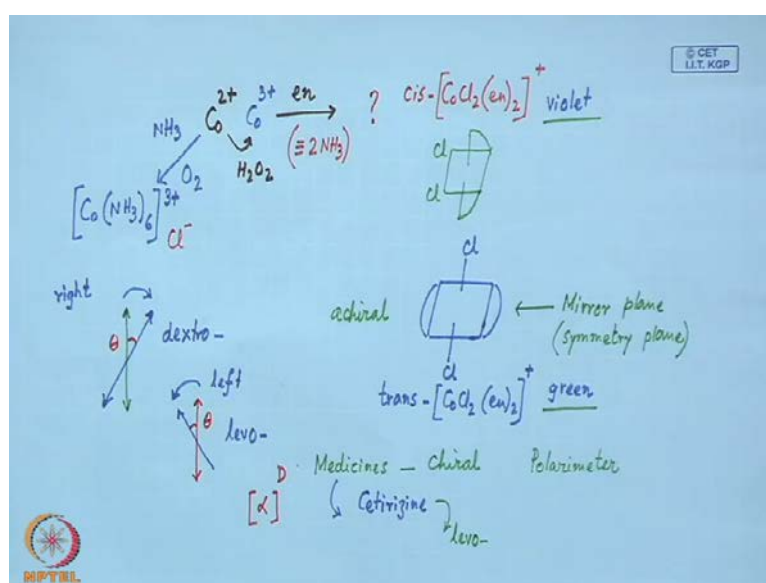 © CET
I.I.T. KGP
NH3 Co2+ Co3+ en ? cis-[CoCl2(en)2]+ violet
(≡ 2NH3)
O2 H2O2
[Co(NH3)6]3+
Cl-
Cl
Cl
Cl
right
achiral ← Mirror plane
(symmetry plane)
θ dextro-
Cl
left
trans-[CoCl2(en)2]+ green
θ levo-
[α]D Medicines - Chiral Polarimeter
Cetirizine
levo-
NPTEL